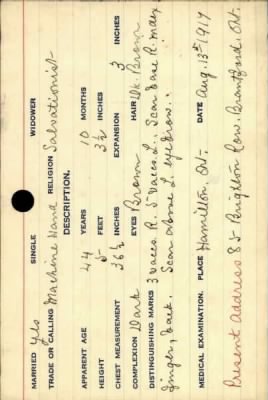 MARRIED Yes SINGLE WIDOWER
TRADE OR CALLING Machine Hand RELIGION Salvationist
DESCRIPTION.
APPARENT AGE 44 YEARS 10 MONTHS
HEIGHT 5 FEET 3½ INCHES
CHEST MEASUREMENT 36½ INCHES EXPANSION 3 INCHES
COMPLEXION Dark EYES Brown HAIR Dk. Brown
DISTINGUISHING MARKS 3 Vaccs R. 5 Vaccs L. Scar base R. index
finger, back. Scar above L. eyebrow.
MEDICAL EXAMINATION. PLACE Hamilton, Ont. DATE Aug. 13th 1917
Present Address 85 Brighton Row, Brantford, Ont.